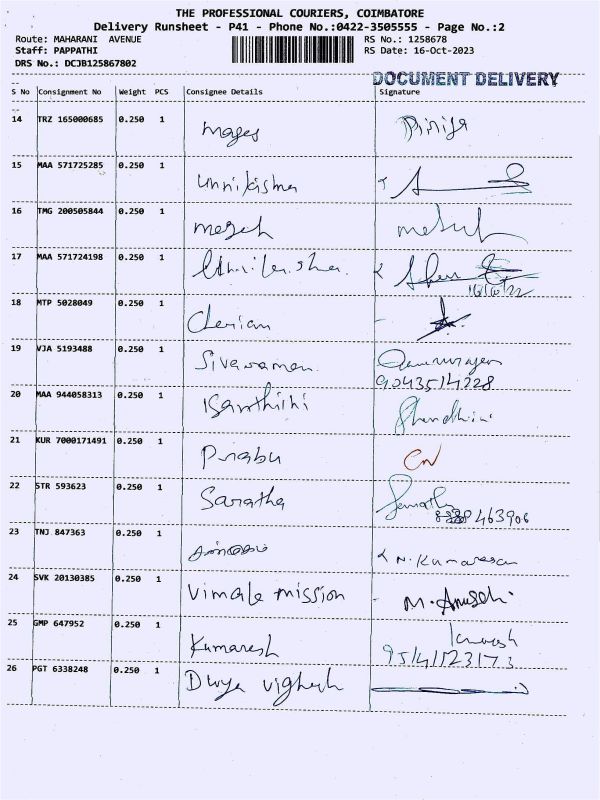 THE PROFESSIONAL COURIERS, COIMBATORE
Delivery Runsheet - P41 - Phone No.:0422-3505555 - Page No.:2
Route: MAHARANI AVENUE RS No.: 1258678
Staff: PAPPATHI RS Date: 16-Oct-2023
DRS No.: DCJB125867802
DOCUMENT DELIVERY
S No Consignment No Weight PCS Consignee Details Signature
14 TRZ 165000685 0.250 1 mages
15 MAA 571725285 0.250 1 unnikisma
16 TMG 200505844 0.250 1
17 MAA 571724198 0.250 1
16/10/22
18 MTP 5028049 0.250 1 Cherian
19 VJA 5193488 0.250 1 Sivaraman
9043514228
20 MAA 944058313 0.250 1
21 KUR 7000171491 0.250 1 Prabu CN
22 STR 593623 0.250 1 Saratha
463906
23 TNJ 847363 0.250 1 N. Kumaresan
24 SVK 20130385 0.250 1 Vimala mission
25 GMP 647952 0.250 1 Kumaresh
9514123173
26 PGT 6338248 0.250 1 Divya vighesh